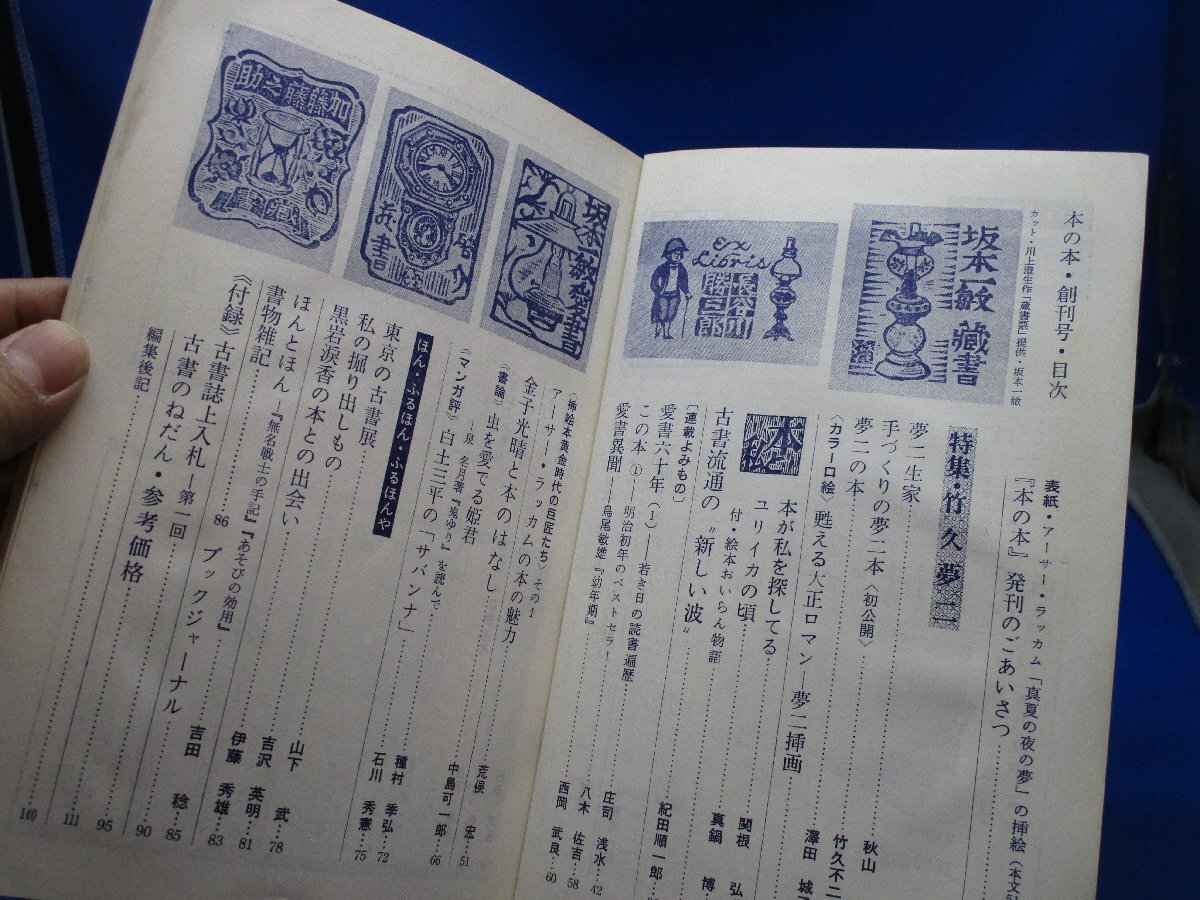 本の本・創刊号・目次
カット・川上澄生作「蔵書票」提供・坂本一敏
坂本一敏藏書
Ex Libris
長谷川勝三郎
表紙・アーサー・ラッカム「真夏の夜の夢」の挿絵(本文51
『本の本』発刊のごあいさつ
特集・竹久夢二
夢二生家 秋山
手づくりの夢二本〈初公開〉 竹久不二
夢二の本 澤田 城
〈カラー口絵〉甦える大正ロマン―夢二挿画
本
本が私を探してる 関根 弘
ユリイカの頃 真鍋 博
付・絵本おいらん物語
古書流通の〝新しい波〟 紀田順一郎
〔連載よみもの〕
愛書六十年(1)―若き日の読書遍歴 庄司 浅水 42
この本①―明治初年のベストセラー 八木 佐吉 58
愛書異聞―島尾敏雄『幼年期』 西岡 武良 60
坂本一敏愛書
〈挿絵本黄金時代の巨匠たち〉その1
アーサー・ラッカムの本の魅力 荒俣 宏 51
金子光晴と本のはなし
〈書論〉虫を愛でる姫君
―泉 名月著『鬼ゆり』を読んで
〈マンガ評〉白土三平の「サバンナ」 中島可一郎 66
ほん・ふるほん・ふるほんや
東京の古書展 種村 季弘 72
私の掘り出しもの 石川 秀憲 75
黒岩涙香の本との出会い 山下 武 78
ほんとほん―『無名戦士の手記』『あそびの効用』 吉沢 英明 81
書物雑記 伊藤 秀雄 83
86 ブックジャーナル 吉田 稔 85
《付録》古書誌上入札―第一回 90
古書のねだん・参考価格 95
111
編集後記 140
加藤藤之助